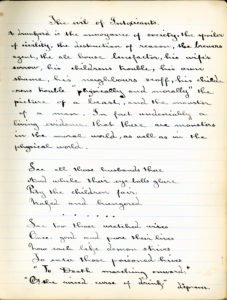 The evil of Intoxicants.
A drunkard is the annoyance of society, the spoiler
of civility, the destruction of reason, the brewers
agent, the ale house benefactor, his wife's
sorrow, his childrens trouble, his own
shame, his neighbours scoff, his child-
rens trouble "physically and morally" the
picture of a beast, and the monster
of a man. In fact undeniably a
living evidence that there are monsters
in the moral world, as well as in the
physical world.
See all those husbands there
And while their eye balls glare
Pity the children fair
Naked and
See too those wretched wives
Once good and pure their lives
Now each like demon strives
To enter those poisoned hives
"To Death marching onward,"
"Oh the cursed curse of drink"